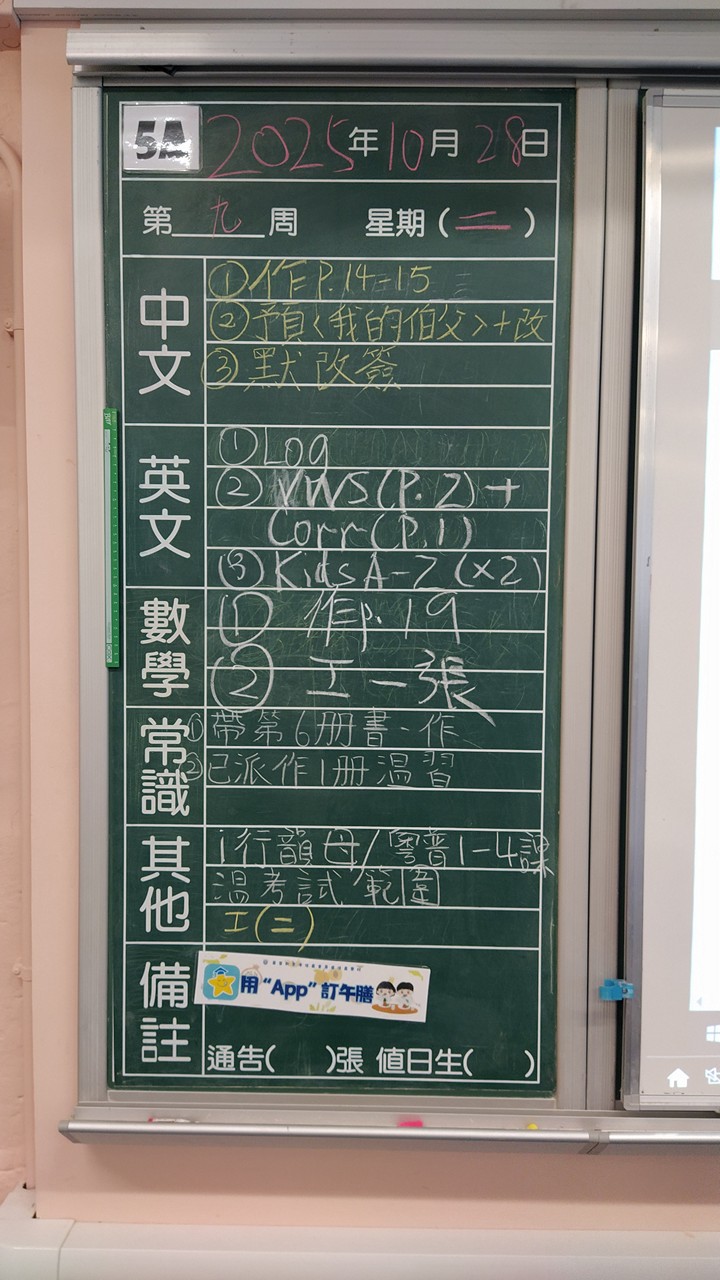 5A 2025年10月28日
第九周 星期(二)
中文
①作P.14-15
②預<我的伯父>+改
③默改簽
英文
①Log
②VWS(P.2)+
Corr(P.1)
③Kids A-Z(×2)
數學
① 作p.19
② 工一張
常識
①帶第6冊書、作
②已派作1冊溫習
其他
i行韻母/粵普1-4課
溫考試範圍
工(二)
備註
用“App”訂午膳
通告( )張 值日生( )